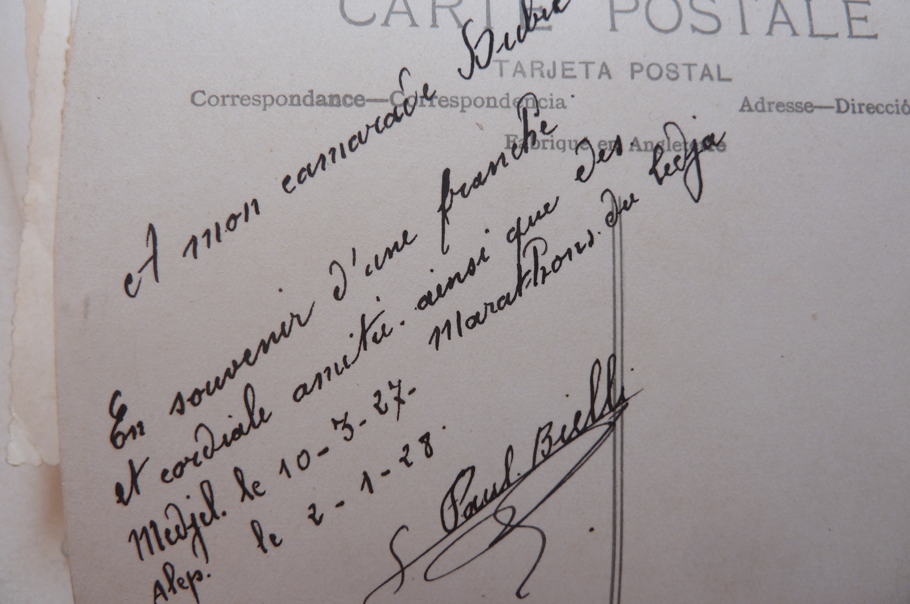 CARTE POSTALE
TARJETA POSTAL
Correspondance—Correspondencia
Adresse—Direcció
Fabriqué en Angleterre
A mon camarade
En souvenir d'une franche
et cordiale amitié. ainsi que des
Marathons du Ledja
Medjel. le 10-3-27-
Alep. le 2-1-28.
Paul Bielli